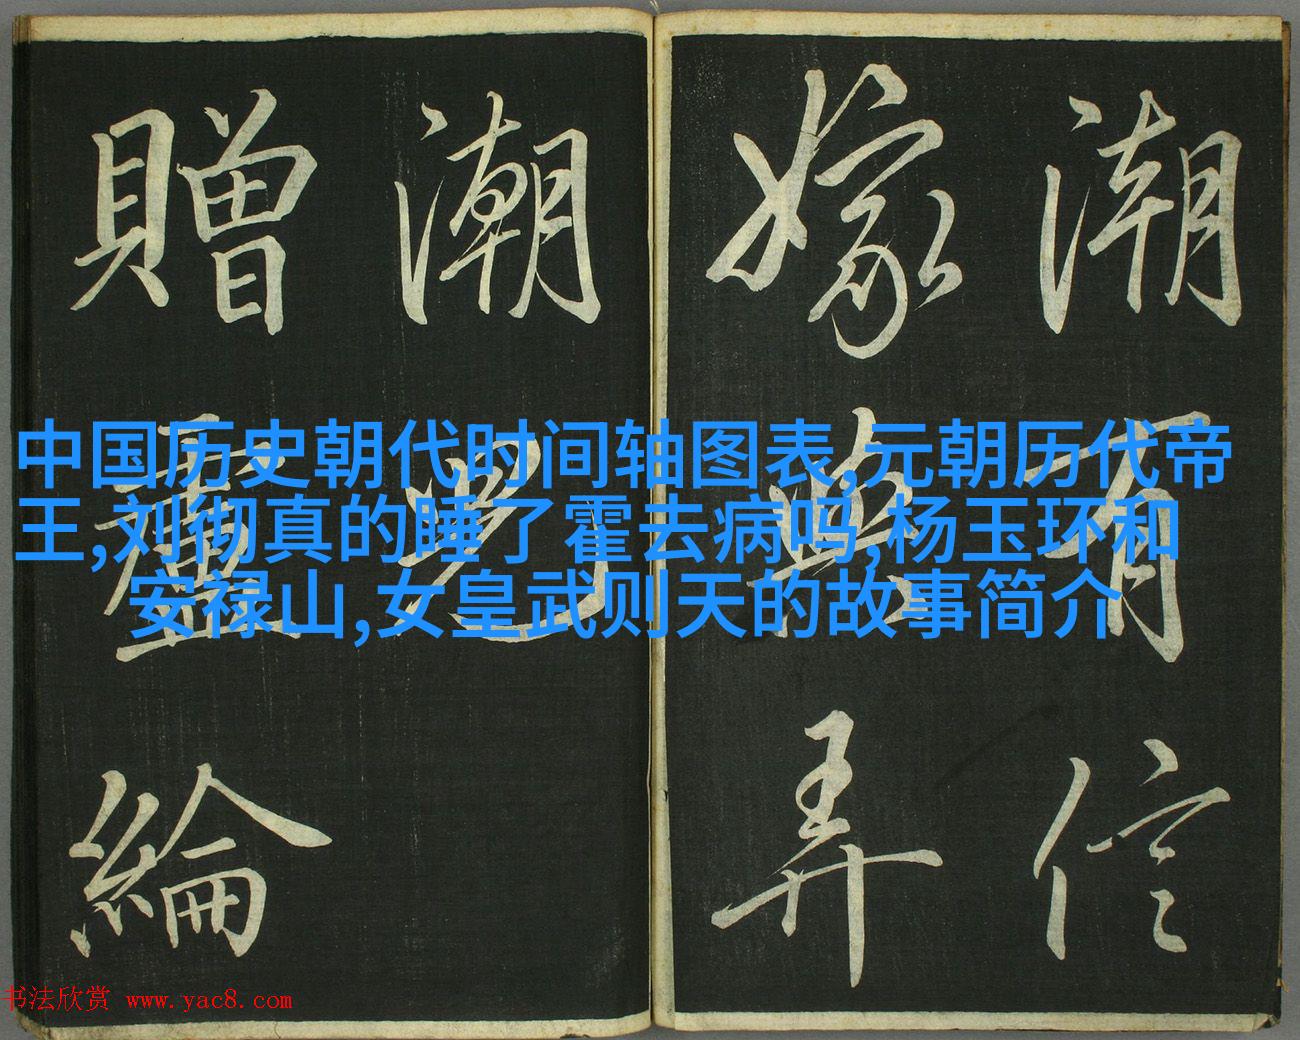 潮有信
嫁與弄
潮兒
贈盧綸
中国历史朝代时间轴图表,元朝历代帝
王,刘彻真的睡了霍去病吗,杨玉环和
安禄山,女皇武则天的故事简介
书法欣赏 www.yac8.com